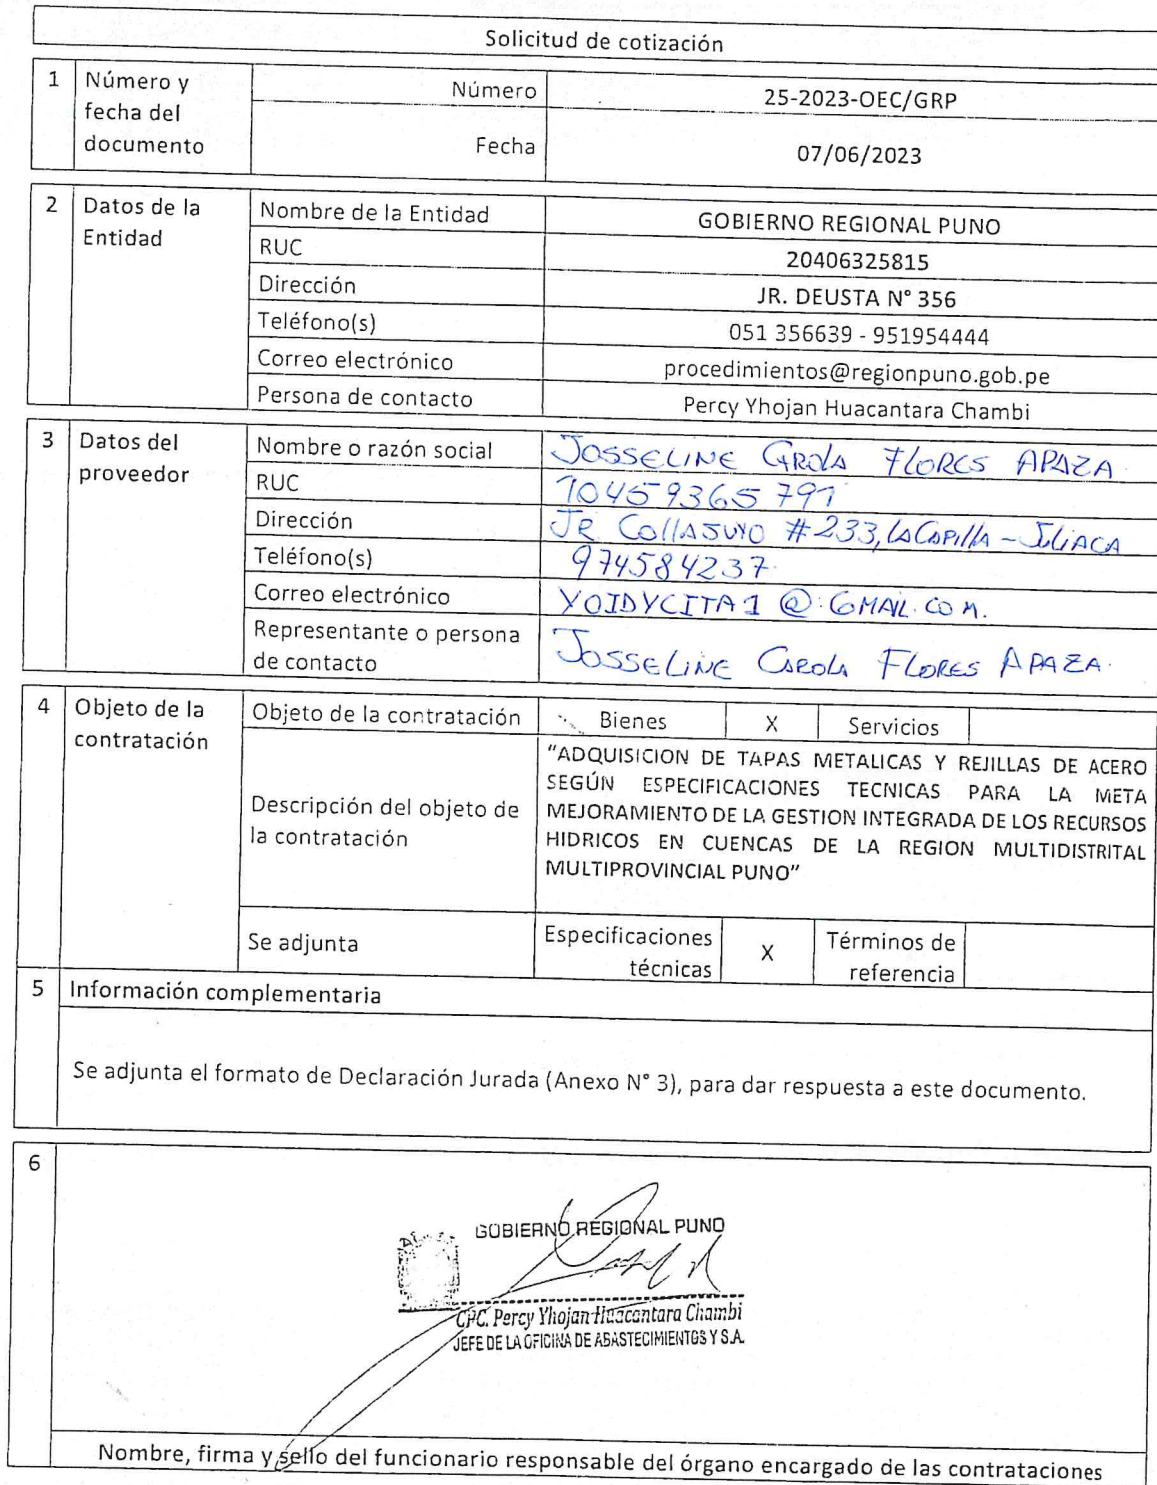 Solicitud de cotización
1 Número y fecha del documento
Número 25-2023-OEC/GRP
Fecha 07/06/2023
2 Datos de la Entidad
Nombre de la Entidad GOBIERNO REGIONAL PUNO
RUC 20406325815
Dirección JR. DEUSTA N° 356
Teléfono(s) 051 356639 - 951954444
Correo electrónico procedimientos@regionpuno.gob.pe
Persona de contacto Percy Yhojan Huacantara Chambi
3 Datos del proveedor
Nombre o razón social JOSSELINE CAROLA FLORES APAZA
RUC 10459365791
Dirección JR COLLASUYO #233, LA CAPILLA - JULIACA
Teléfono(s) 974584237
Correo electrónico YOIDYCITA1@GMAIL.COM.
Representante o persona de contacto JOSSELINE CAROLA FLORES APAZA.
4 Objeto de la contratación
Objeto de la contratación Bienes X Servicios
Descripción del objeto de la contratación
"ADQUISICION DE TAPAS METALICAS Y REJILLAS DE ACERO
SEGÚN ESPECIFICACIONES TECNICAS PARA LA META
MEJORAMIENTO DE LA GESTION INTEGRADA DE LOS RECURSOS
HIDRICOS EN CUENCAS DE LA REGION MULTIDISTRITAL
MULTIPROVINCIAL PUNO"
Se adjunta Especificaciones técnicas X Términos de referencia
5 Información complementaria
Se adjunta el formato de Declaración Jurada (Anexo N° 3), para dar respuesta a este documento.
6
GOBIERNO REGIONAL PUNO
CPC. Percy Yhojan Huacantara Chambi
JEFE DE LA OFICINA DE ABASTECIMIENTOS Y S.A.
Nombre, firma y sello del funcionario responsable del órgano encargado de las contrataciones